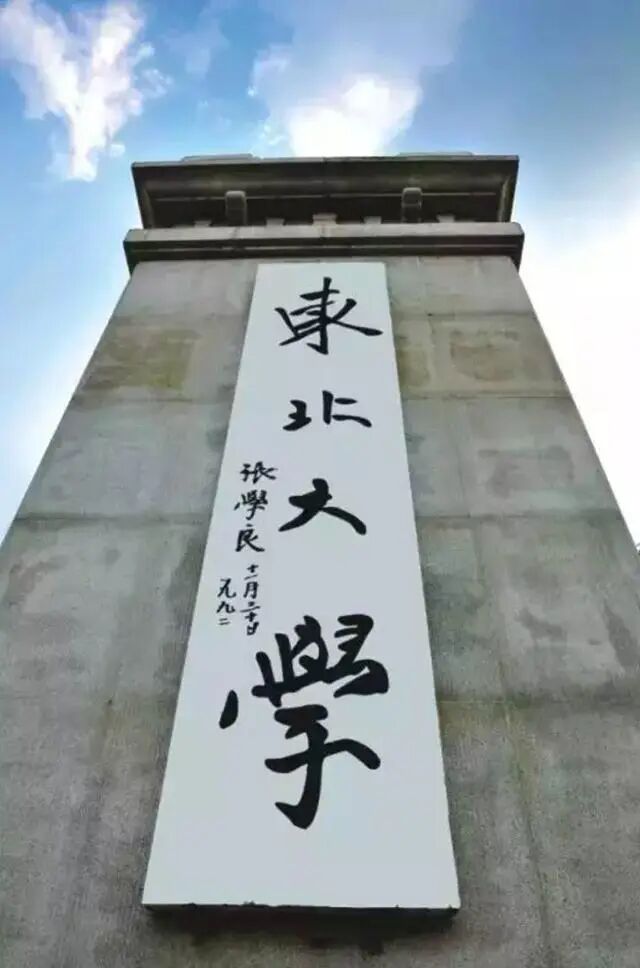 東北大學
張學良
十一月二十日
一九九二